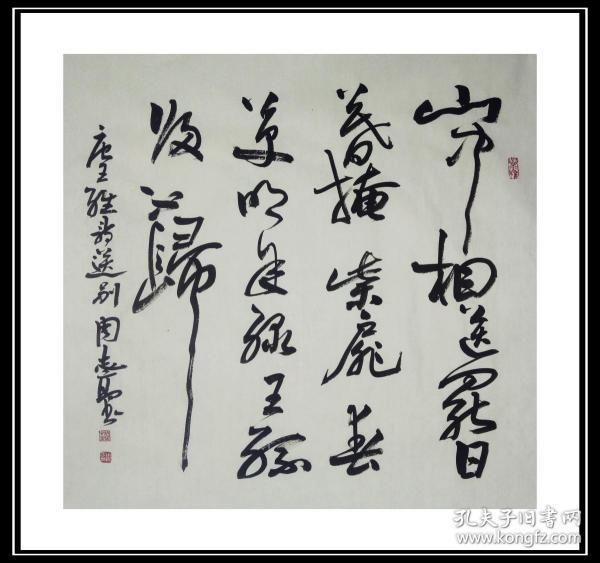 山中相送罷日
暮掩柴扉春
草明年綠王孫
归不歸
唐王維詩送別 周志
孔夫子旧书网
www.kongfz.com